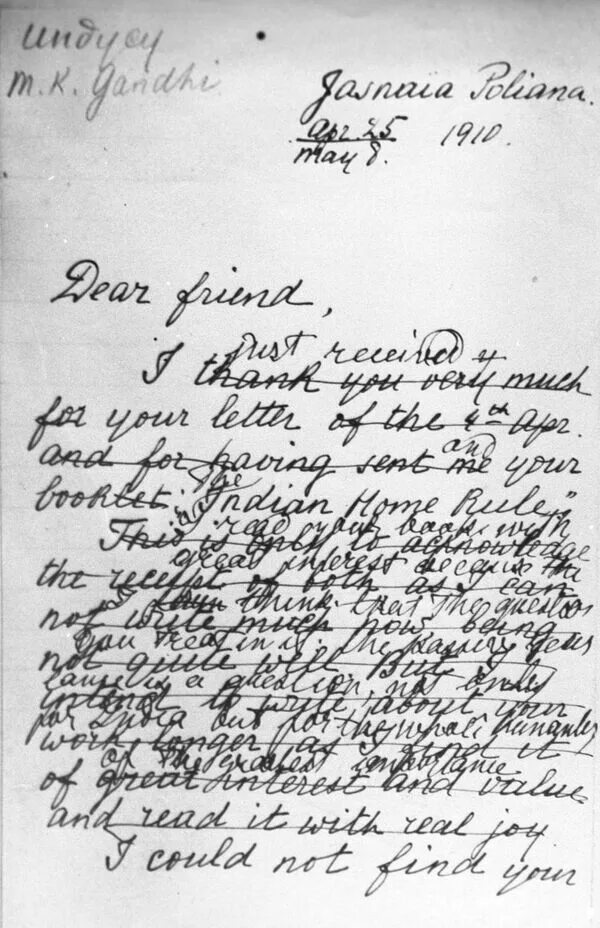 Индусу
M. K. Gandhi
Jasnaïa Poliana.
Apr. 25 1910.
May 8.
Dear friend,
just received y
I thank you very much
for your letter of the 4th Apr.
and
and for having sent me your
booklet: The "Indian Home Rule,"
I read your book with
This is only to acknowledge
great interest because the
the receipt of both as I can
I think that the question
not write much now being
you treat in it: the passive resis
not quite well. But
tance is a question not only
intend to write about your
for India but for the whole humanity
work longer as I find it
of the greatest importance
of great interest and value
and read it with real joy
I could not find your